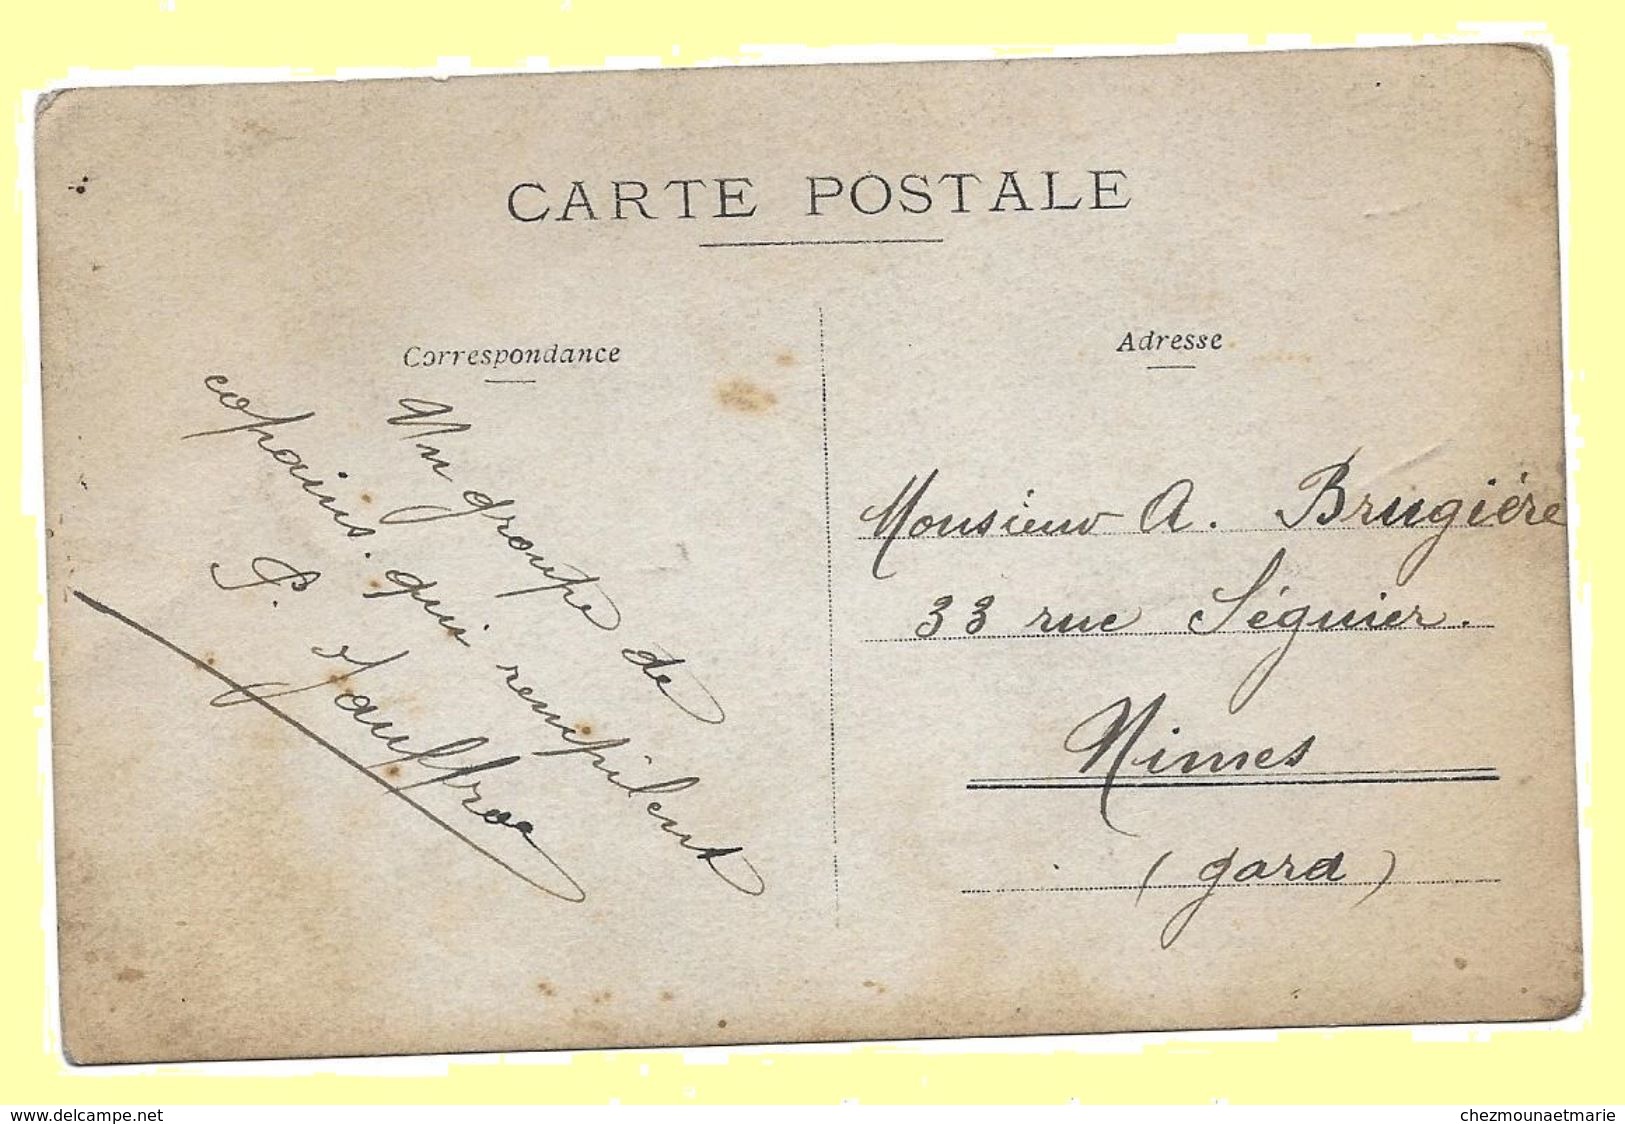 CARTE POSTALE
Correspondance
Adresse
Un groupe de
copains. qui rempilent
P. Jauffroa
Monsieur A. Brugière
33 rue Séguier.
Nimes
(gard)
www.delcampe.net
chezmounaetmarie